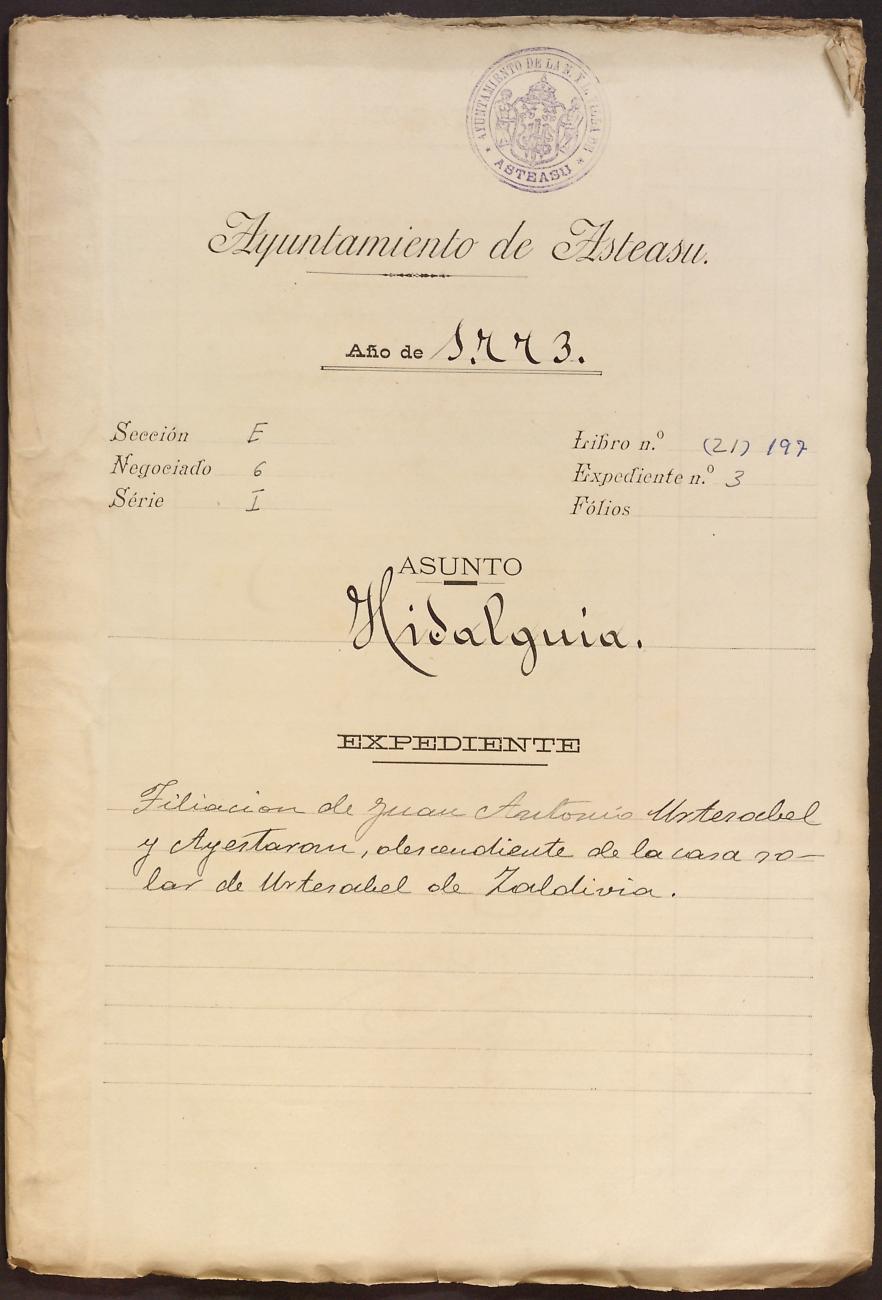 AYUNTAMIENTO DE LA N. Y L. VILLA DE
* ASTEASU *
Ayuntamiento de Asteasu.
Año de 1.773.
Sección E
Negociado 6
Série I
Libro n.º (21) 197
Expediente n.º 3
Fólios
ASUNTO
Hidalguia.
EXPEDIENTE
Filiacion de Juan Antonio Urtesabel
y Ayestaran, descendiente de la casa so-
lar de Urtesabel de Zaldivia.